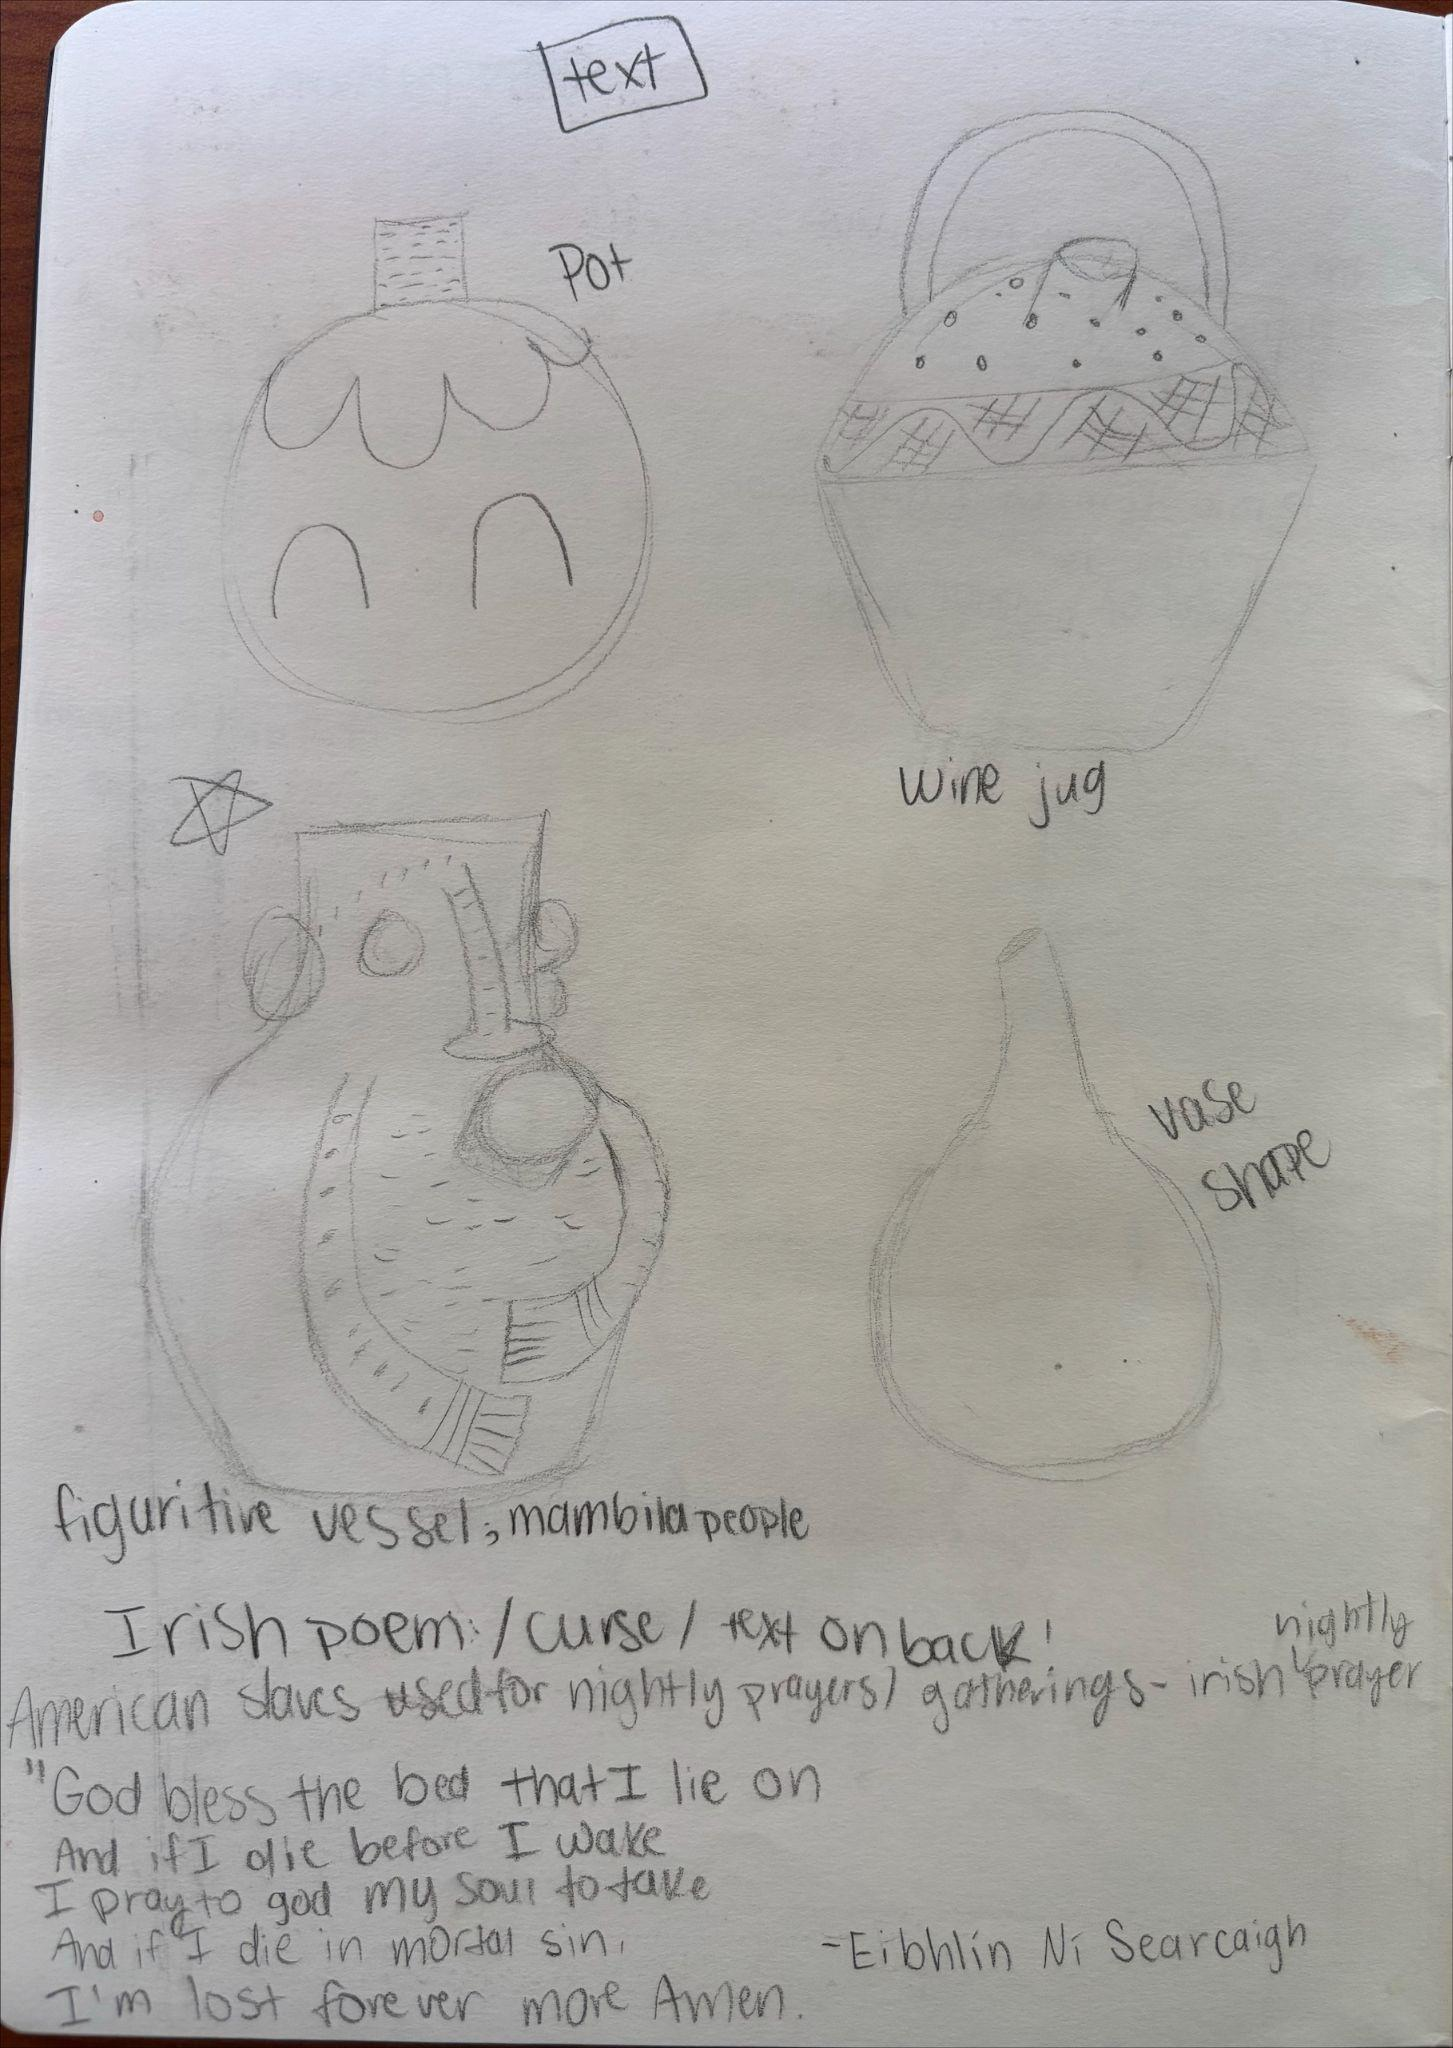 text
Pot
wine jug
vase
shape
figuritive vessel; mambila people
Irish poem: / curse / text on back!
nightly
American slaves used for nightly prayers / gatherings - irish prayer
"God bless the bed that I lie on
And if I die before I wake
I pray to god my soul to take
And if I die in mortal sin,
-Eibhlín Ní Searcaigh
I'm lost forever more Amen.